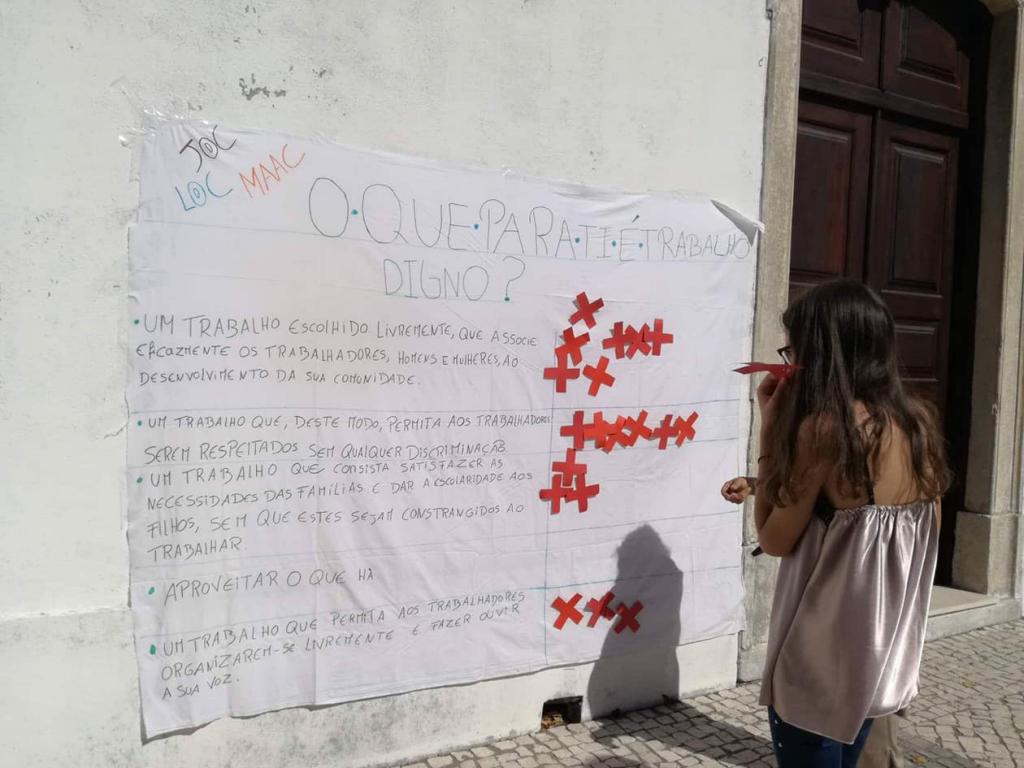 J@C
L@C MAAC
O·QUE·PARA·TI·É·TRABALHO
DIGNO?
• UM TRABALHO ESCOLHIDO LIVREMENTE, QUE ASSOCIE
EFICAZMENTE OS TRABALHADORES, HOMENS E MULHERES, AO
DESENVOLVIMENTO DA SUA COMUNIDADE.
• UM TRABALHO QUE, DESTE MODO, PERMITA AOS TRABALHADORES
SEREM RESPEITADOS SEM QUALQUER DISCRIMINAÇÃO
• UM TRABALHO QUE CONSISTA SATISFAZER AS
NECESSIDADES DAS FAMÍLIAS E DAR A ESCOLARIDADE AOS
FILHOS, SEM QUE ESTES SEJAM CONSTRANGIDOS AO
TRABALHAR
• APROVEITAR O QUE HÁ
• UM TRABALHO QUE PERMITA AOS TRABALHADORES
ORGANIZAREM-SE LIVREMENTE E FAZER OUVIR
A SUA VOZ.